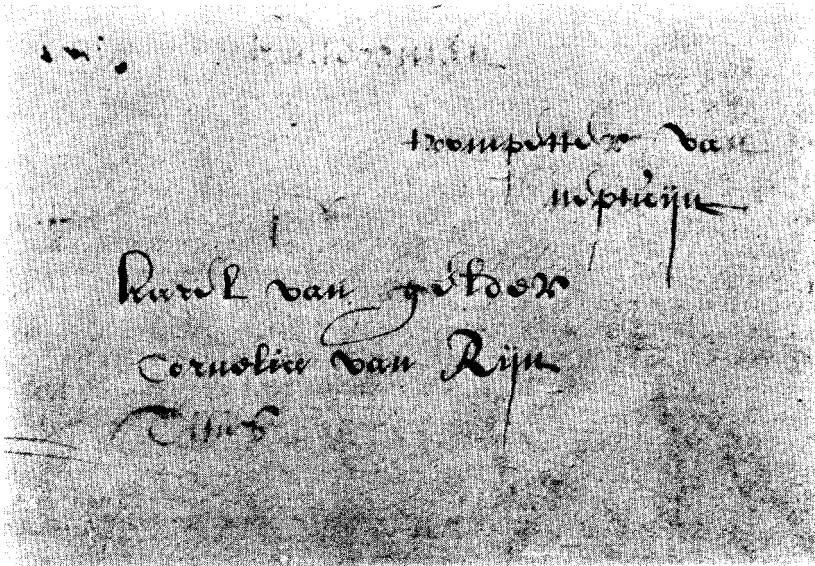 trompetter van
neptuijn
karel van gelder
Cornelia van Rijn
Titus